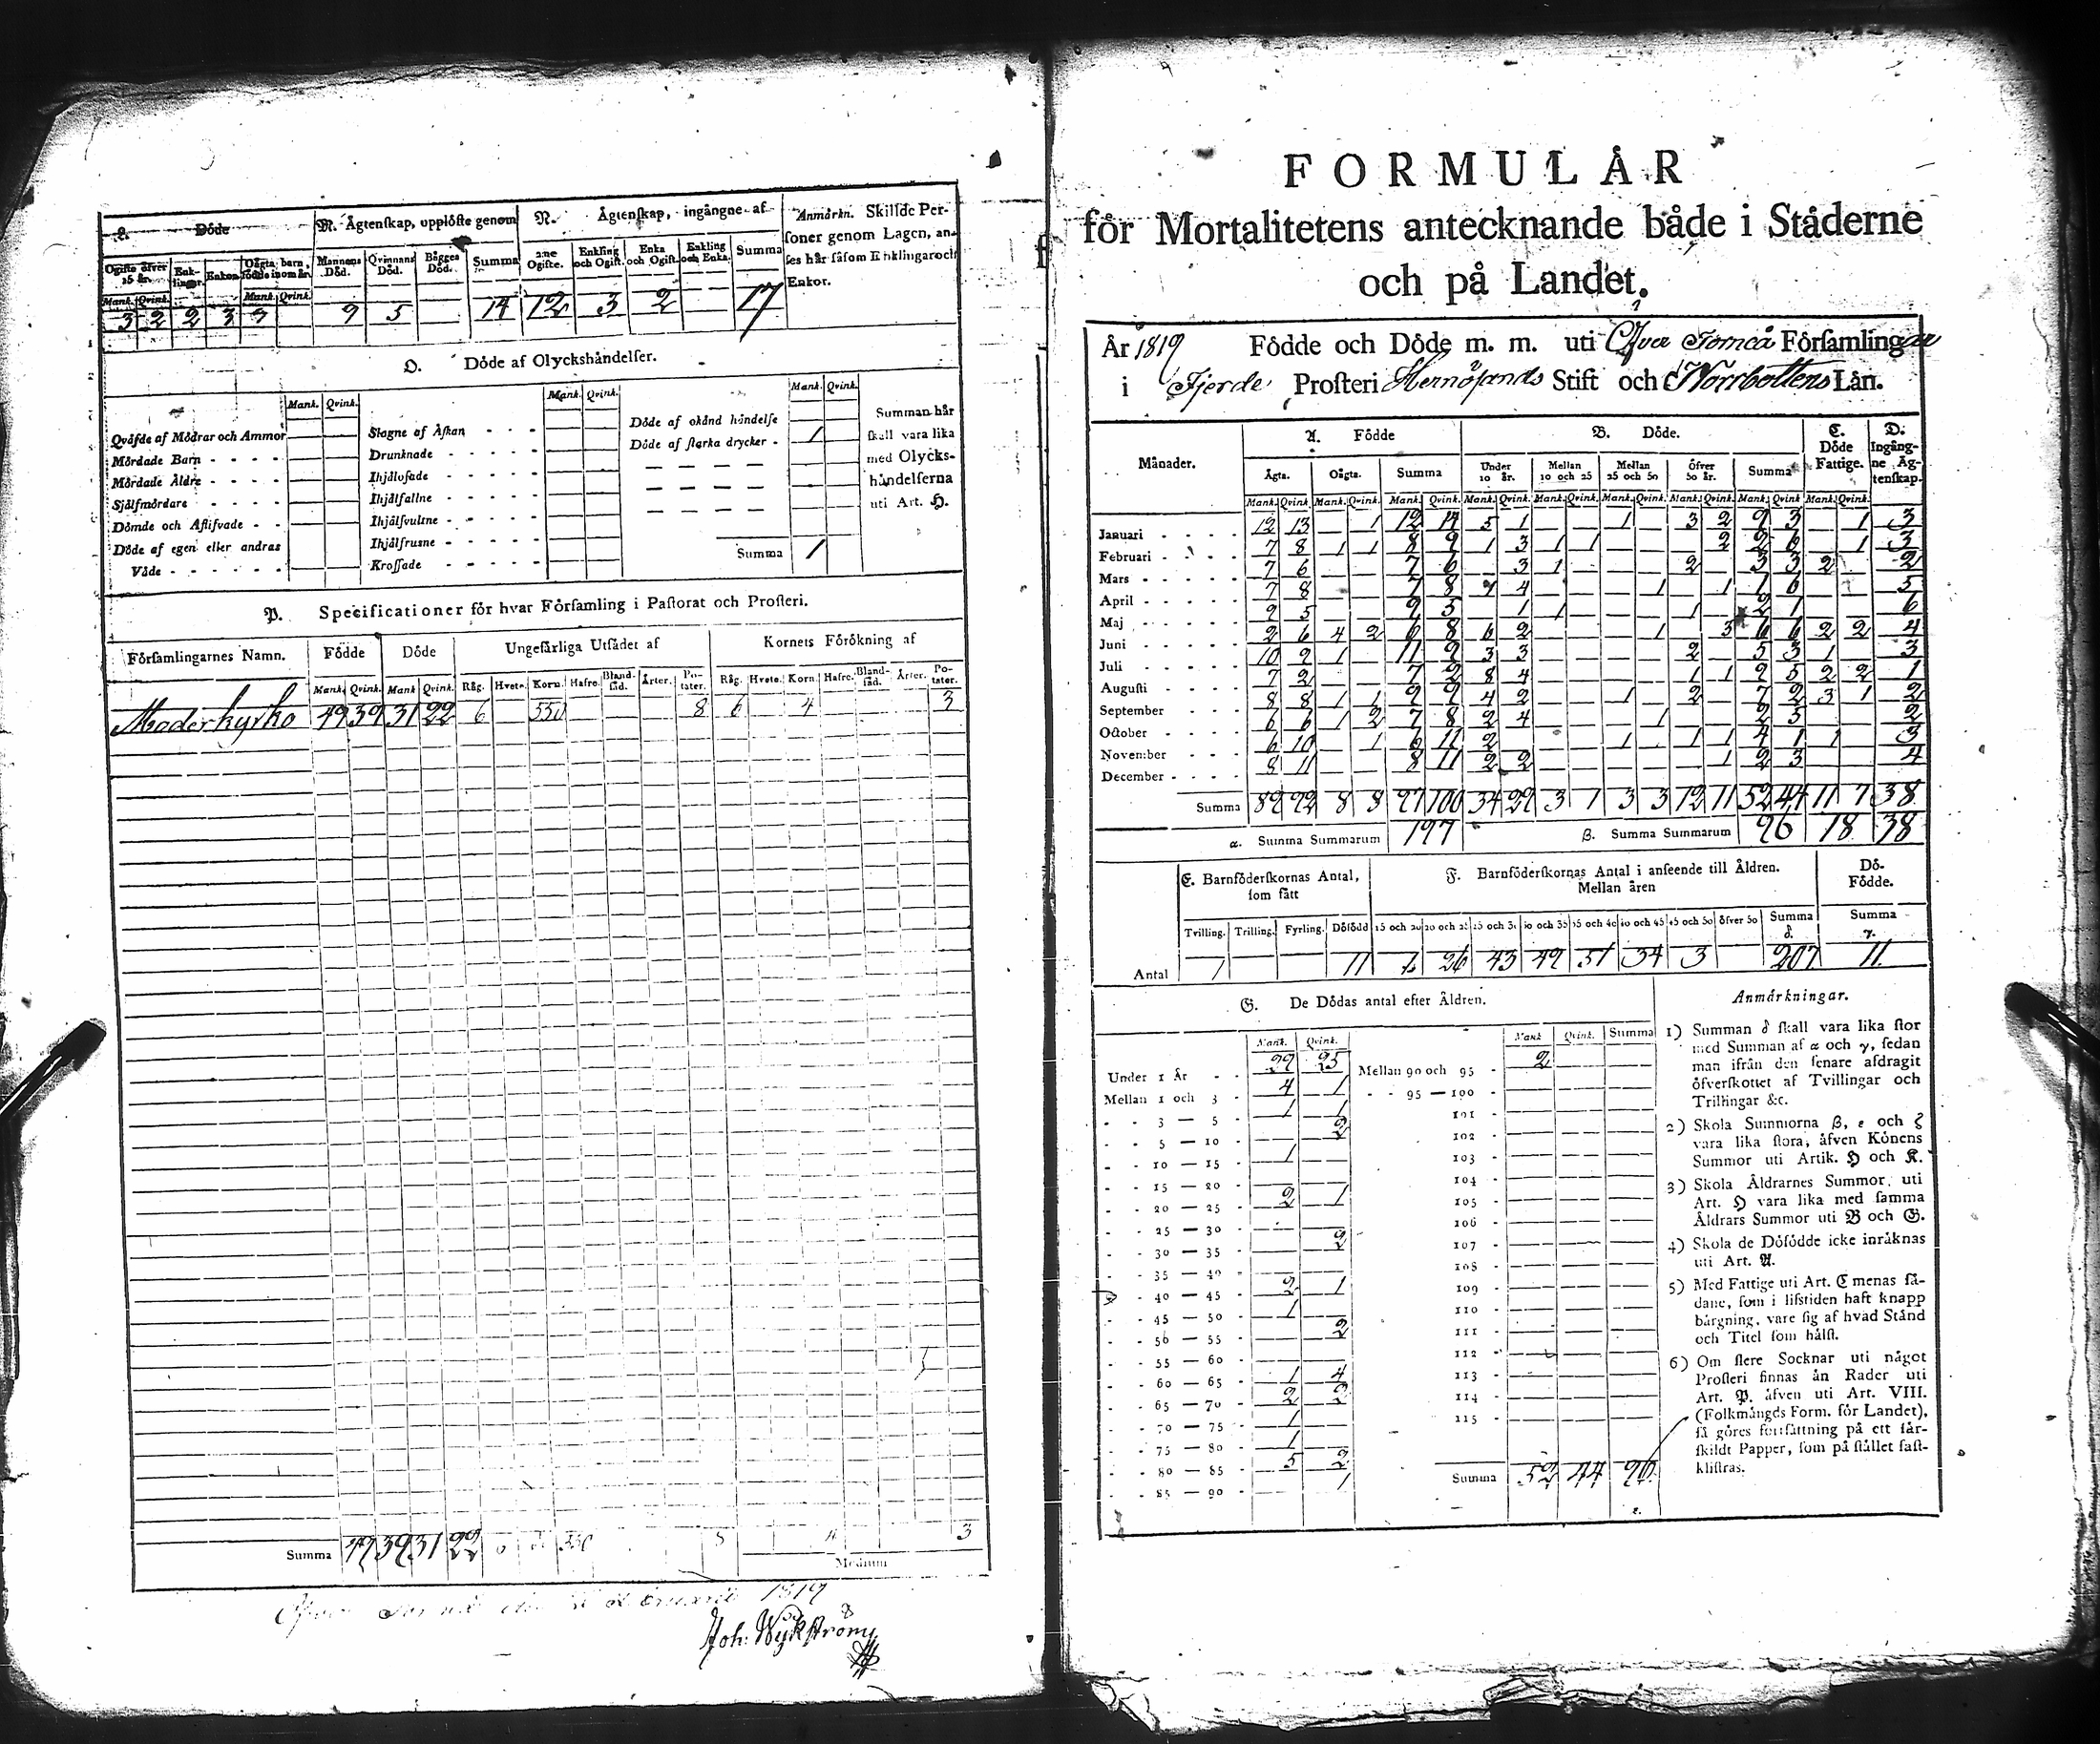 L. Döde
M. Ägtenskap, upplöste genom
N. Ägtenskap, ingångne af
Anmärkn. Skillde Per-
soner genom Lagen, an-
ses här såsom Enklingar och
Enkor.
Ogifte öfver 15 år.
Enk-lingar.
Enkor.
Oägta barn, födde inom år.
Mannens Död.
Qvinnans Död.
Bägges Död.
Summa
Ogifte.
Enkling och Ogift.
Enka och Ogift.
Enkling och Enka.
Summa
Mank. Qvink. Mank. Qvink.
3 2 2 3 9 5 14 12 3 2 17
O. Döde af Olyckshändelser.
Mank. Qvink. Mank. Qvink. Mank. Qvink.
Qväfde af Mödrar och Ammor
Mördade Barn
Mördade Äldre
Sjelfmördare
Dömde och Aflifvade
Döde af egen eller andras
Våde
Slagne af Åskan
Drunknade
Ihjälsofade
Ihjälfallne
Ihjälfrusne
Krossade
Döde af okänd händelse
Döde af starka drycker - 1
Summa 1
Summan här
skall vara lika
med Olycks-
händelserna
uti Art. H.
P. Specificationer för hvar Församling i Pastorat och Prosteri.
Församlingarnes Namn. Födde Döde Ungefärliga Utsädet af Kornets Förökning af
Mank. Qvink. Mank. Qvink. Råg. Hvete. Korn. Hafre. Bland-säd. Ärter. Po-tater. Råg. Hvete. Korn. Hafre. Bland-säd. Ärter. Po-tater.
Moderkyrko 49 39 31 22 6 550 8 6 4 3
Summa 49 39 31 22 3
Medium
1819
Joh. Wykström
FORMULÄR
för Mortalitetens antecknande både i Städerne
och på Landet.
År 1819 Födde och Döde m. m. uti Öfver Torneå Församlingar
i Fjerde Prosteri Hernösands Stift och Norrbottens Län.
Månader. A. Födde B. Döde. C. Döde Fattige. D. Ingång-ne Äg-tenskap.
Ägta. Oägta. Summa Under 10 år. Mellan 10 och 25 Mellan 25 och 50 Öfver 50 år. Summa
Mank. Qvink. Mank. Qvink. Mank. Qvink. Mank. Qvink. Mank. Qvink. Mank. Qvink. Mank. Qvink. Mank. Qvink. Mank. Qvink.
Januari 12 13 1 12 14 5 1 1 3 2 9 3 1 3
Februari 7 8 1 1 8 9 1 3 1 1 2 2 6 1 3
Mars 7 6 7 6 3 1 2 3 3 2 2
April 7 8 7 8 4 1 1 6 5
Maj 9 5 9 5 1 1 1 2 1 6
Juni 2 6 4 2 6 8 6 2 1 3 6 6 2 2 4
Juli 10 9 1 11 9 3 3 2 5 3 1 3
Augusti 7 2 7 2 8 4 1 1 9 5 2 2 1
September 8 8 1 1 9 9 4 2 1 2 7 2 3 1 2
October 6 6 1 2 7 8 2 4 1 2 5 2
November 6 10 1 6 11 2 1 1 1 4 1 1 3
December 8 11 8 11 2 2 1 2 3 4
Summa 89 92 8 8 97 100 34 29 3 1 3 3 12 11 52 44 11 7 38
α. Summa Summarum 197 β. Summa Summarum 96 18 38
E. Barnföderskornas Antal,
som fått
F. Barnföderskornas Antal i anseende till Åldren.
Mellan åren
Dö-
Födde.
Tvilling. Trilling. Fyrling. Dödfödd 15 och 20 20 och 25 25 och 30 30 och 35 35 och 40 40 och 45 45 och 50 öfver 50 Summa δ. Summa γ.
Antal 1 11 26 43 49 51 34 3 207 11
G. De Dödas antal efter Åldren.
Mank. Qvink. Mank. Qvink. Summa
Under 1 År - - 29 25 Mellan 90 och 95 - 2
Mellan 1 och 3 - 4 1 - - 95 — 100
- - 3 — 5 - 1 1 101
- - 5 — 10 - 2 102
- - 10 — 15 - 1 103
- - 15 — 20 - 104
- - 20 — 25 - 2 1 105
- - 25 — 30 - 106
- - 30 — 35 - 2 107
- - 35 — 40 - 108
- - 40 — 45 - 2 1 109
- - 45 — 50 - 1 110
- - 50 — 55 - 2 111
- - 55 — 60 - 112
- - 60 — 65 - 1 4 113
- - 65 — 70 - 2 2 114
- - 70 — 75 - 1 115
- - 75 — 80 - 1
- - 80 — 85 - 5 2 Summa 52 44 96
- - 85 — 90 - 1
Anmärkningar.
1) Summan δ skall vara lika stor
med Summan af α och γ, sedan
man ifrån den senare afdragit
öfverskottet af Tvillingar och
Trillingar &c.
2) Skola Summorna β, ε och ζ
vara lika stora, äfven Könens
Summor uti Artik. H och K.
3) Skola Åldrarnes Summor, uti
Art. H vara lika med samma
Åldrars Summor uti B och G.
4) Skola de Dödfödde icke inräknas
uti Art. A.
5) Med Fattige uti Art. C menas så-
dane, som i lifstiden haft knapp
bärgning, vare sig af hvad Stånd
och Titel som hälst.
6) Om flere Socknar uti något
Prosteri finnas än Rader uti
Art. P. äfven uti Art. VIII.
(Folkmängds Form. för Landet),
så göres fortsättning på ett sär-
skildt Papper, som på stället fast-
klistras.